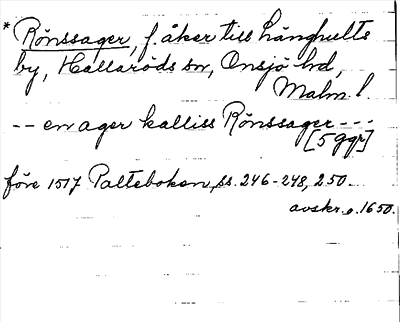 * Rönssager, f. åker till Långhults
by, Hallaröds sn, Onsjö hd,
Malm. l.
-- en ager kalliss Rönssager ---
[5 ggr]
före 1517 Palteboken, ss. 246-248, 250.
avskr. o. 1650.